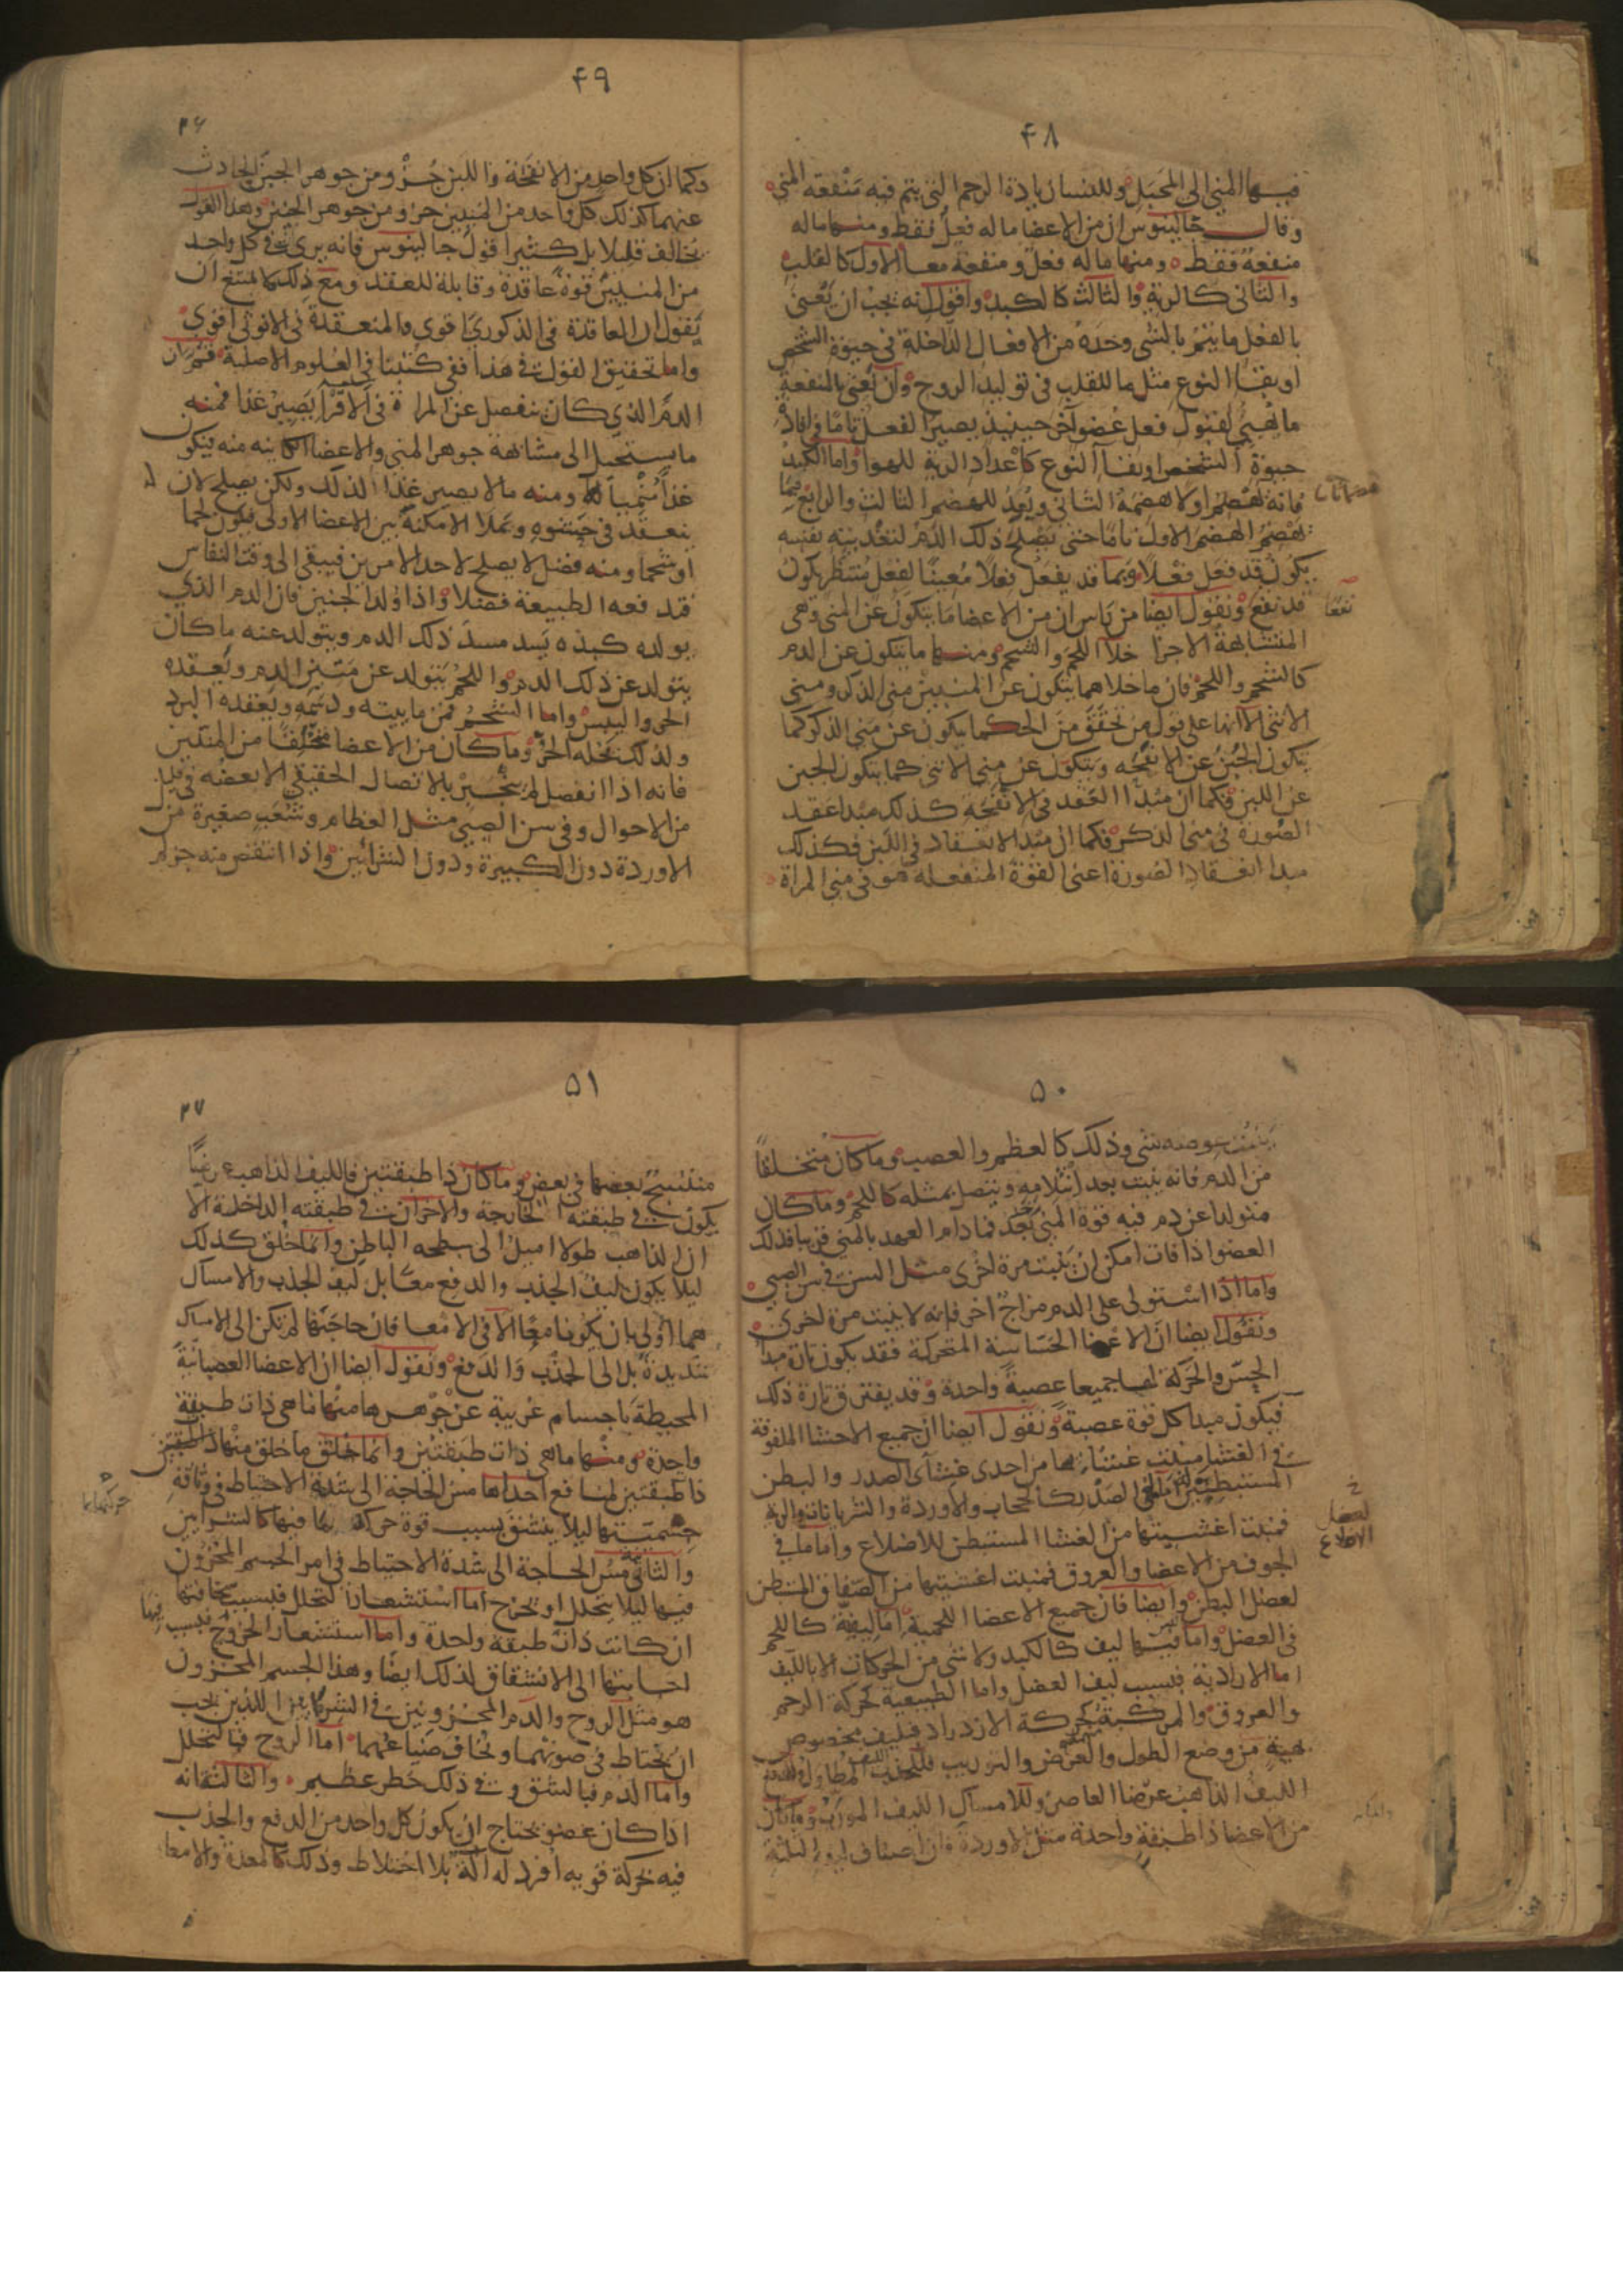 ۴۸
فيها المنى الى المحبل وللنسا زيادة الرحم التى يتم فيه منفعة المنى
وقال جالينوس ان من الاعضا ما له فعل فقط ومنها ما له
منفعة فقط ومنها ما له فعل ومنفعة معا الاول كالقلب
والثانى كالرية والثالث كالكبد واقول انه يجب ان نعنى
بالفعل ما يتم بالشى وحده من الافعال الداخلة فى حيوة الشخص
او بقا النوع مثل ما للقلب فى توليد الروح وان نعنى بالمنفعة
ما تهيى لقبول فعل عضو آخر حينيذ يصير الفعل تاما فى افادة
حيوة الشخص او بقا النوع كاعداد الرية للهوا واما الكبد
فانه تهضم اولا هضمه الثانى ويعد للهضم الثالث والرابع فيما
تهضم الهضم الاول تاما حتى يصلح ذلك الدم لتغذيته نفسه
يكون قد فعل فعلا وبما قد يفعل فعلا معينا لفعل منتظر يكون
قد نفع ونقول ايضا من راس ان من الاعضا ما يتكون عن المنى وهى
المتشابهة الاجزا خلا اللحم والشحم ومنها ما يتكون عن الدم
كالشحم واللحم فان ما خلاهما يتكون عن المنيين منى الذكر ومنى
الانثى الا انها على قول من تحقق من الحكما يكون عن منى الذكر كما
يتكون الجبن عن الانفحة ويتكون عن منى الانثى كما يتكون الجبن
عن اللبن وكما ان مبدا العقد فى الانفحة كذلك مبدا عقد
الصورة فى منى الذكر وكما ان مبدا الانعقاد فى اللبن فكذلك
مبدا انعقاد الصورة اعنى القوة المنفعلة هو فى منى المراة
نفعا
۴۹
۲۶
وكما ان كل واحد من الانفحة واللبن جزؤ من جوهر الجبن الحادث
عنهما كذلك كل واحد من المنيين جزو من جوهر الجنين وهذا القول
يخالف قليلا بل كثيرا قول جالينوس فانه يرى فى كل واحد
من المنيين قوة عاقدة وقابلة للعقد ومع ذلك فلا يمتنع ان
يقول ان العاقدة فى الذكورى اقوى والمنعقدة فى الانوثى اقوى
واما تحقيق القول فى هذا ففى كتبنا فى العلوم الاصلية ثم ان
الدم الذى كان ينفصل عن المراة فى الاقرا يصير غذا فمنه
ما يستحيل الى مشابهة جوهر المنى والاعضا الكاينه منه فيكون
غذا منميا له ومنه ما لا يصير غذا لذلك ولكن يصلح لان
ينعقد فى حشوه ويملا الامكنة بين الاعضا الاولى فيكون لحما
او شحما ومنه فضل لا يصلح لاحد الامرين فيبقى الى وقت النفاس
فتدفعه الطبيعة فضلا واذا ولد الجنين فان الدم الذى
يولده كبده يسد مسد ذلك الدم ويتولد عنه ما كان
يتولد عن ذلك الدم واللحم يتولد عن متين الدم ويعقده
الحر واليبس واما الشحم فمن مايته ودسمه ويعقده البرد
ولذلك يحله الحر وما كان من الاعضا متخلقا من المنيين
فانه اذا انفصل لم ينجبر بالاتصال الحقيقى الا بعضه فى قليل
من الاحوال وفى سن الصبى مثل العظام وشعب صغيرة من
الاوردة دون الكبيرة ودون الشرائين واذا انتقص منه جزء لم
۵۰
ينبت عوضه شى وذلك كالعظم والعصب وما كان متخلقا
من الدم فانه ينبت بعد انثلامه ويتصل بمثله كاللحم وما كان
متولدا عن دم فيه قوة المنى بعد فما دام العهد بالمنى قريبا فذلك
العضو اذا فات امكن ان ينبت مرة اخرى مثل السن فى سن الصبى
واما اذا استولى على الدم مزاج آخر فانه لا ينبت مرة اخرى
ونقول ايضا ان الاعضا الحساسة المتحركة فقد يكون تارة مبدا
الحس والحركة لها جميعا عصبة واحدة وقد يفترق تارة ذلك
فيكون مبدا كل قوة عصبة ونقول ايضا ان جميع الاحشا الملفوفة
فى الغشا منبت غشائها من احدى غشائى الصدر والبطن
المستبطنين اما فى الصدر كالحجاب والاوردة والشريانات والرية
فمنبت اغشيتها من الغشا المستبطن للاضلاع واما ما فى
الجوف من الاعضا والعروق فمنبت اغشيتها من الصفاق المستبطن
لعضل البطن وايضا فان جميع الاعضا اللحمية اما ليفية كاللحم
فى العضل واما ليس فيها ليف كالكبد ولا شى من الحركات الا بالليف
اما الارادية فبسبب ليف العضل واما الطبيعية كحركة الرحم
والعروق والمركبة كحركة الازدراد فبليف مخصوص
بهيئة من وضع الطول والعرض والتوريب فللجذب الليف المطاول وللدفع
الليف الذاهب عرضا العاصر وللامساك الليف المورب وما كان
من الاعضا ذا طبقة واحدة مثل الاوردة فان اصناف ليفه الثلثة
لعضل
الاضلاع
۵۱
۲۷
منتسج بعضها فى بعض وما كان ذا طبقتين فالليف الذاهب عرضا
يكون فى طبقته الخارجة والاخران فى طبقته الداخلة الا
ان الذاهب طولا اميل الى سطحه الباطن وانما خلق كذلك
ليلا يكون ليف الجذب والدفع معا بل ليف الجذب والامساك
هما اولى بان يكونا معا الا فى الامعا فان حاجتها لم تكن الى الامساك
شديدة بل الى الجذب والدفع ونقول ايضا ان الاعضا العصبانية
المحيطة باجسام غريبة عن جوهرها منها ما هى ذات طبقة
واحدة ومنها ما هى ذات طبقتين وانما خلق ما خلق منها ذا طبقتين
ذا طبقتين لمنافع احداها مس الحاجة الى شدة الاحتياط فى وثاقة
جسميتها ليلا ينشق بسبب قوة حركة بما فيها كالشرايين
والثانى مس الحاجة الى شدة الاحتياط فى امر الجسم المخزون
فيها ليلا يتحلل او يخرج اما استشعار التحلل فبسبب سخافتها
ان كانت ذات طبقة واحدة واما استشعار الخروج فبسبب
اجابتها الى الانشقاق لذلك ايضا وهذا الجسم المخزون
هو مثل الروح والدم المخزونين فى الشريانين اللذين يجب
ان يحتاط فى صونهما ويخاف ضياعهما اما الروح فبالتحلل
واما الدم فبالشق وفى ذلك خطر عظيم والثالث انه
اذا كان عضو يحتاج ان يكون كل واحد من الدفع والجذب
فيه بحركة قويه افرد له آلة بلا اختلاط وذلك كالمعدة والامعا